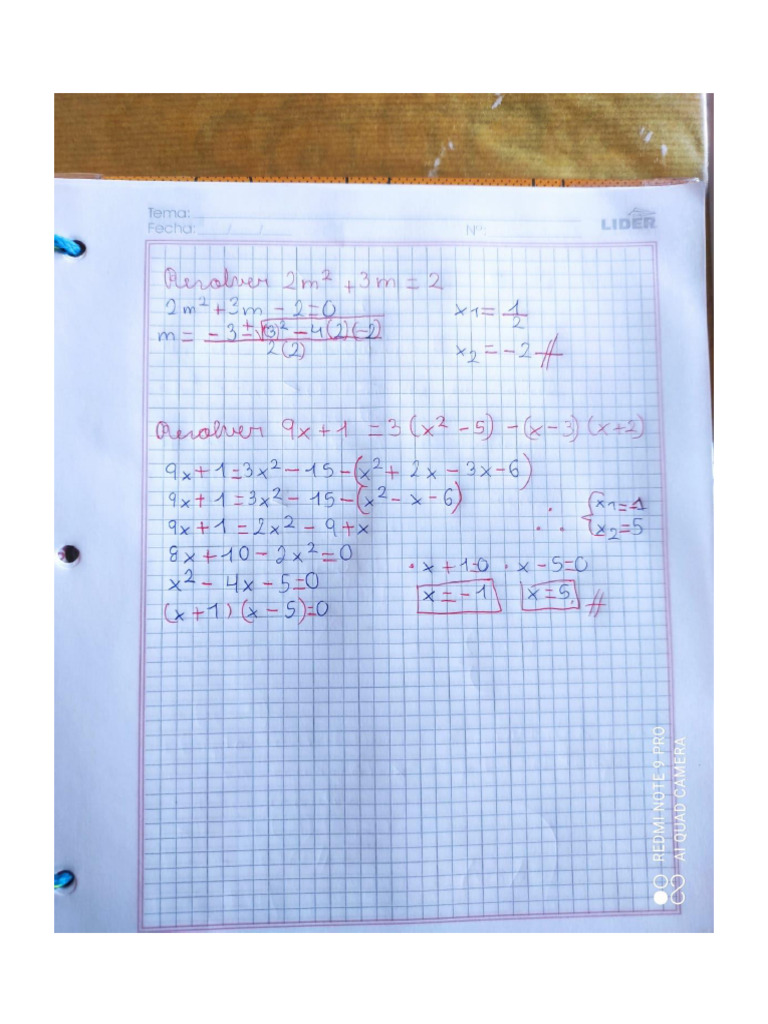 Tema:
Fecha: / / Nº: LIDER
Resolver 2m² + 3m = 2
2m² + 3m - 2 = 0
m = -3 ± √(3)² - 4(2)(-2)
2(2)
x1 = 1/2
x2 = -2 //
Resolver 9x + 1 = 3(x² - 5) - (x - 3)(x + 2)
9x + 1 = 3x² - 15 - (x² + 2x - 3x - 6)
9x + 1 = 3x² - 15 - (x² - x - 6)
9x + 1 = 2x² - 9 + x
8x + 10 - 2x² = 0
x² - 4x - 5 = 0
(x + 1) (x - 5) = 0
• x + 1=0 • x - 5=0
x = -1 x = 5. //
∴ { x1 = -1
x2 = 5
REDMI NOTE 9 PRO
AI QUAD CAMERA